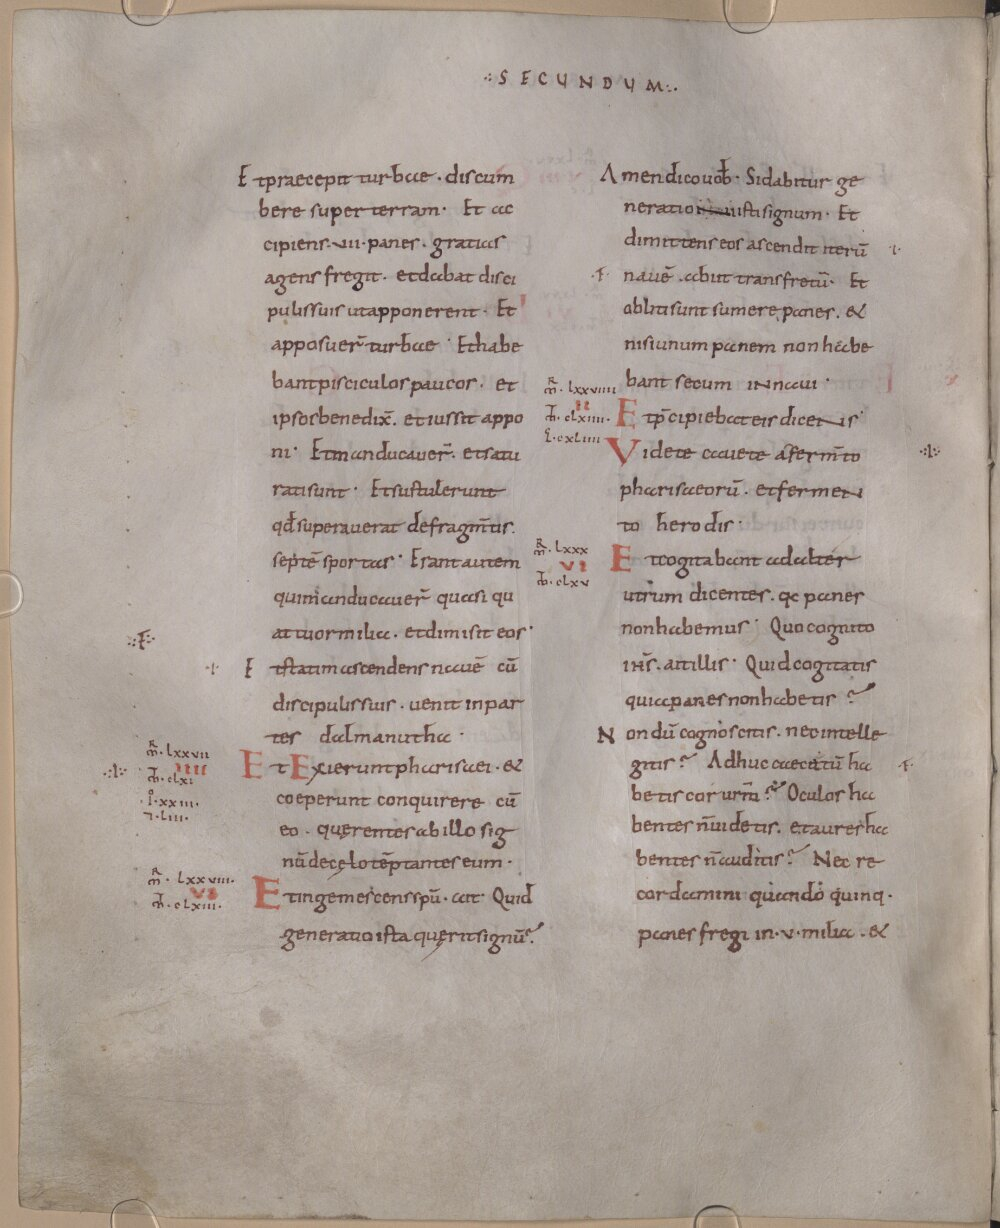 SECUNDUM
Et praecepit turbae. discum
bere super terram. Et ac
cipiens .vii. panes. gratias
agens fregit. et dabat disci
pulis suis ut apponerent. Et
apposuer̄ turbae. Et habe
bant pisciculos paucos. et
ipsos benedix̄. et iussit appo
ni. Et manducauer̄. et satu
rati sunt. Et sustulerunt
qđ superauerat de fragm̄tis.
septē sportas. Erant autem
qui manducauer̄ quasi qu
attuor milia. et dimisit eos.
Et statim ascendens nauē cū
discipulis suis. uenit in par
tes dalmanutha.
m̄r. lxxvii
IIII
m̄t. clxi
l. xxiii.
i. liii.
Et Exierunt pharisaei. &
coeperunt conquirere cū
eo. querentes ab illo sig
nū de celo tēptantes eum.
m̄r. lxxviii.
VI
m̄t. clxiii.
Et ingemescens spū. ait. Quid
generatio ista querit signū?
Amen dico uob. Si dabitur ge
neratioi isti signum. Et
dimittens eos ascendit iterū
nauē. abiit trans fretū. Et
obliti sunt sumere panes. &
nisi unum panem non habe
bant secum in naui.
m̄r. lxxviiii
II
m̄t. clxiiii.
l. cxliiii
Et p̄cipiebat eis dicens
Videte cauete a ferm̄to
pharisaeorū. et fermen
to herodis.
m̄r. lxxx
VI
m̄t. clxv
Et cogitabant ad alter
utrum dicentes. qa panes
non habemus. Quo cognito
ih̄s. ait illis. Quid cogitatis
quia panes non habetis?
Nondū cognoscitis. nec intelle
gitis? Adhuc caecatū ha
betis cor urm̄? Oculos ha
bentes n̄ uidetis. et aures ha
bentes n̄ auditis? Nec re
cordamini quando quinq.
panes fregi in .v. milia. &